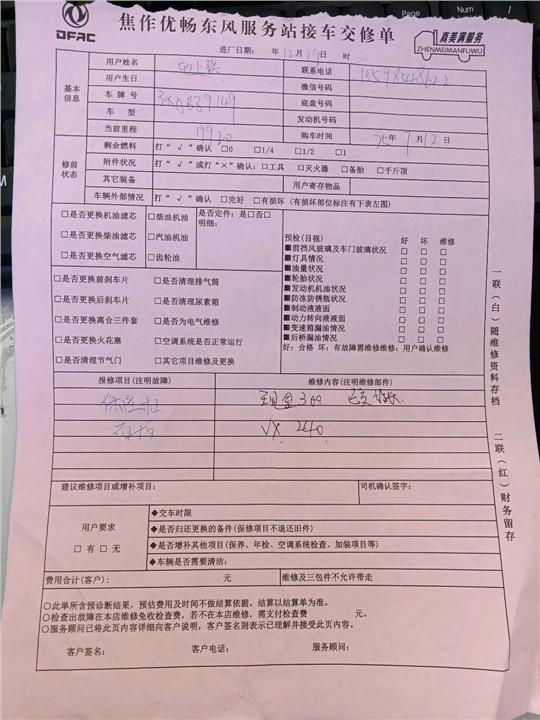 DFAC
焦作优畅东风服务站接车交修单
真美满服务
ZHENMEIMANFUWU
进厂日期: 年 12 月 19 日 时
基本信息
用户姓名 联系电话
用户生日 微信号码
车 牌 号 底盘号码
车 型 发动机号码
当前里程 购车时间 25 年 7 月 12 日
修前状态
剩余燃料 打“√”确认 □0 □1/4 □1/2 □1
附件状况 打“√”或打“×”确认:□工具 □灭火器 □备胎 □千斤顶
其它装备 用户寄存物品
车辆外部情况 打“√”确认 □完好 □有损坏 (有损坏部位标注有下表左图)
□是否更换机油滤芯 □柴油机油 是否定件: 是□否□
明细:
□是否更换柴油滤芯 □汽油机油
□是否更换空气滤芯 □齿轮油
□是否更换前刹车片 □是否清理排气筒
□是否更换后刹车片 □是否清理尿素箱
□是否更换离合三件套 □是否为电气维修
□是否更换火花塞 □空调系统是否正常运行
□是否清理节气门 □其它项目维修及更换
预检(目视) 好 坏 维修
■前挡风玻璃及车门玻璃状况 □ □ □
■灯具情况 □ □ □
■油量状况 □ □ □
■轮胎状况 □ □ □
■发动机机油状况 □ □ □
■防冻防锈瓶状况 □ □ □
■制动液液面 □ □ □
■动力转向液液面 □ □ □
■变速箱漏油情况 □ □ □
■后桥漏油情况 □ □ □
好: 合格 坏: 有故障需维修维修: 用户确认维修
报修项目(注明故障) 维修内容(注明维修部件)
保险杠 现金300
√× 240
建议维修项目或增补项目: 司机确认签字:
用户要求
□ 有 □ 无
◆交车时限
◆是否归还更换的备件(保修项目不退还旧件)
◆是否增补其他项目(保养、年检、空调系统检查、加装项目等)
◆车辆是否需要清洁:
费用合计(客户): 元 维修及三包件不允许带走
○此单所含预诊断结果，预估费用及时间不做结算依据，结算以结算单为准。
○检查出故障在本店维修免收检查费，若不在本店维修，需支付检查费 元。
○服务顾问已将此页内容详细向客户说明，客户签名则表示已理解并接受此页内容。
客户签名: 客户电话: 服务顾问:
一联(白)随维修资料存档 二联(红)财务留存